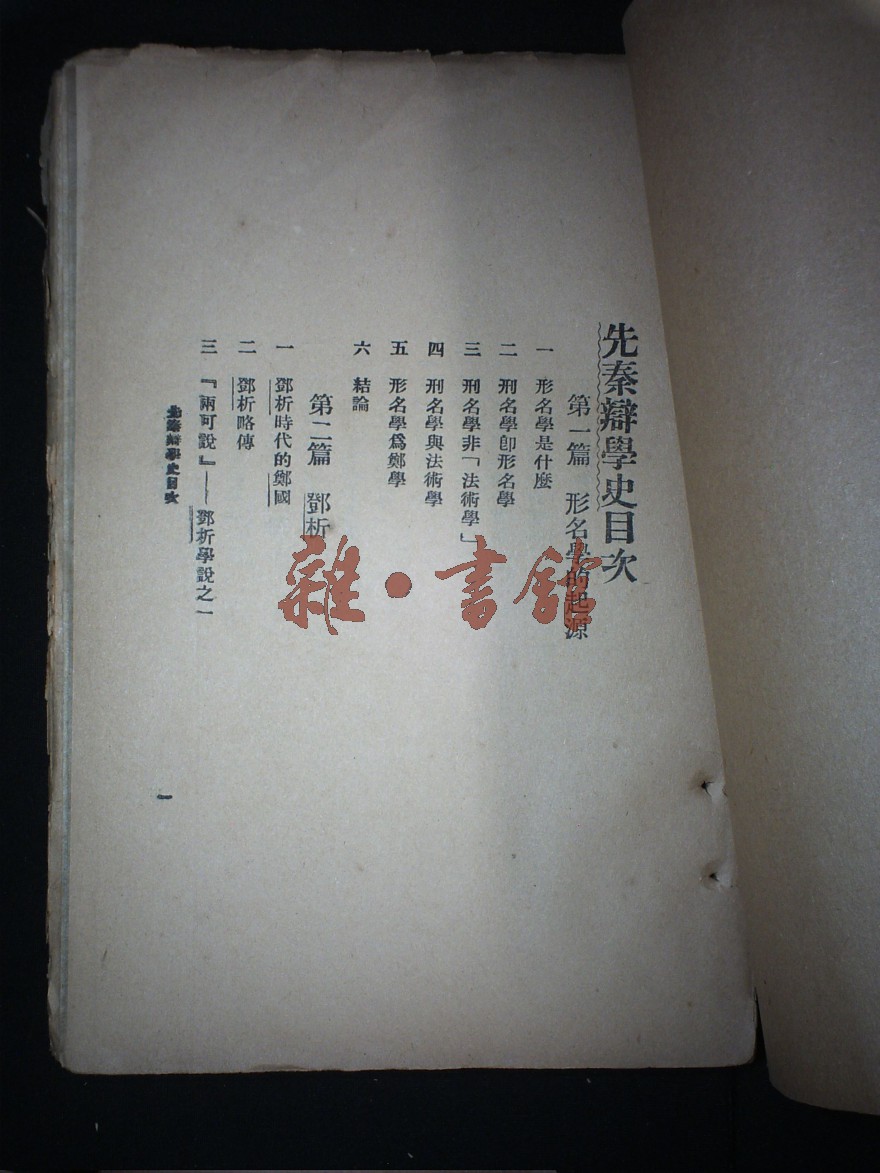 先秦辯學史目次
第一篇 形名學的起源
一 形名學是什麽
二 刑名學卽形名學
三 刑名學非「法術學」
四 刑名學與法術學
五 形名學爲鄭學
六 結論
第二篇 鄧析
一 鄧析時代的鄭國
二 鄧析略傳
三 『兩可說』——鄧析學說之一
先秦辯學史目次
一
雜·書館